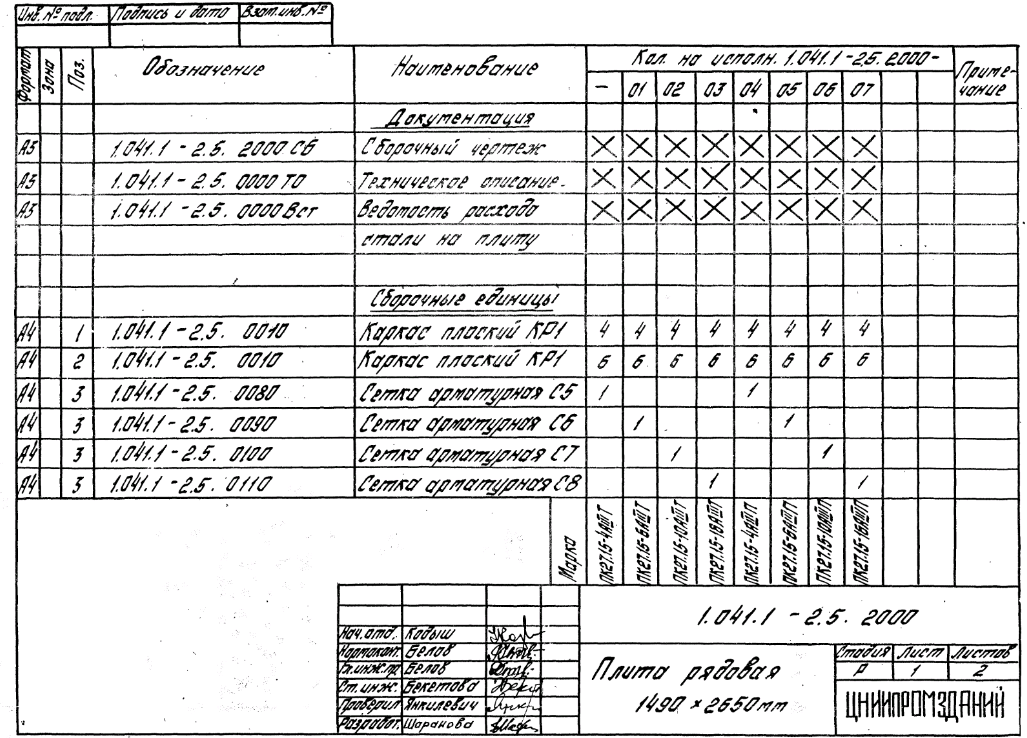 Инв. № подл. Подпись и дата Взам.инв.№
Формат Зона Поз. Обозначение Наименование Кол. на исполн. 1.041.1-2.5.2000- Приме-чание
- 01 02 03 04 05 06 07
Документация
А3 1.041.1-2.5. 2000 СБ Сборочный чертеж X X X X X X X X
А3 1.041.1-2.5. 0000 ТО Техническое описание. X X X X X X X X
А3 1.041.1-2.5. 0000 Вст Ведомость расхода X X X X X X X X
стали на плиту
Сборочные единицы
А4 1 1.041.1-2.5. 0010 Каркас плоский КР1 4 4 4 4 4 4 4 4
А4 2 1.041.1-2.5. 0010 Каркас плоский КР1 6 6 6 6 6 6 6 6
А4 3 1.041.1-2.5. 0080 Сетка арматурная С5 1 1
А4 3 1.041.1-2.5. 0090 Сетка арматурная С6 1 1
А4 3 1.041.1-2.5. 0100 Сетка арматурная С7 1 1
А4 3 1.041.1-2.5. 0110 Сетка арматурная С8 1 1
Марка ПК27.15-4АIIIТ ПК27.15-6АIIIТ ПК27.15-10АIIIТ ПК27.15-16АIIIТ ПК27.15-4АIIIП ПК27.15-6АIIIП ПК27.15-10АIIIП ПК27.15-16АIIIП
1.041.1-2.5. 2000
Нач. отд. Кодыш
Нормоконт. Белов
Гл.инж.пр. Белов
Ст.инж. Бекетова
Проверил Янкилевич
Разработ. Шаранова
Плита рядовая
1490 × 2650 мм
Стадия Лист Листов
Р 1 2
ЦНИИПРОМЗДАНИЙ